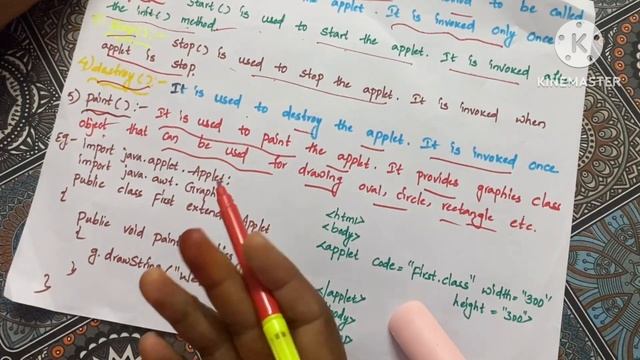 start() is used to start the applet. It is invoked to be called
the init() method.
the applet. It is invoked only once
3) stop() :-
stop() is used to stop the applet. It is invoked when
applet is stop.
4) destroy() :-
It is used to destroy the applet. It is invoked once
5) paint() :- It is used to paint the applet. It provides graphics class
object that can be used for drawing oval, circle, rectangle etc.
Eg:- import java.applet.Applet;
import java.awt.Graph
public class First extends Applet
{
Public void Paint
{
g.drawString("We
}
}
<html>
<body>
<applet code="First.class" width="300"
height="300">
</applet>
KINEMASTER